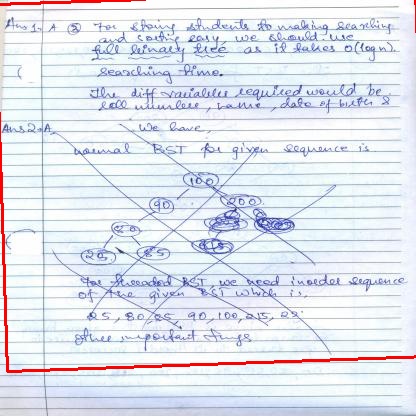 Ans 1- A ② For storing students to making searching
and sorting easy, we should use
full binary tree as it takes O(logn).
searching time.
The diff variables required would be
roll number, name, date of birth &
Ans 2- A. We have,
normal BST for given sequence is
100
90 200
80
25 85
For threaded BST, we need inorder sequence
of the given BST which is,
25, 80, 85, 90, 100, 215, 22
other important